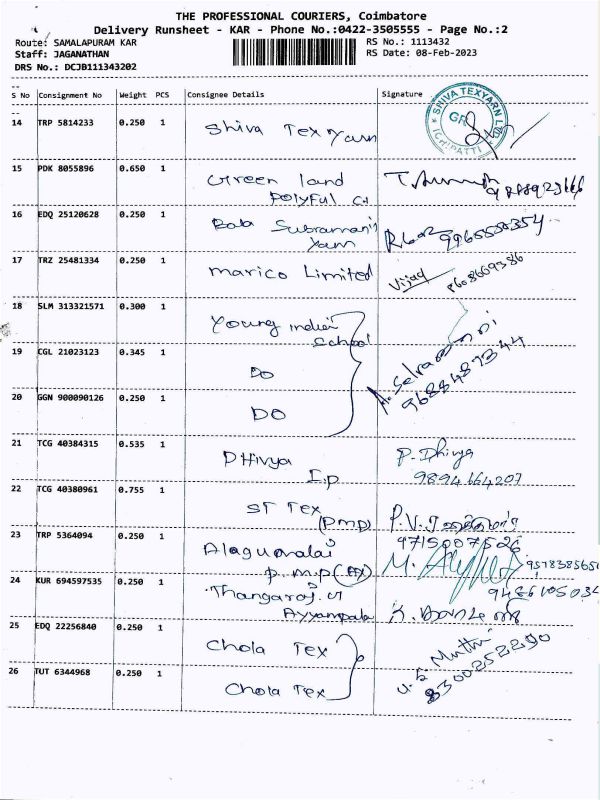 THE PROFESSIONAL COURIERS, Coimbatore
Delivery Runsheet - KAR - Phone No.:0422-3505555 - Page No.:2
Route: SAMALAPURAM KAR RS No.: 1113432
Staff: JAGANATHAN RS Date: 08-Feb-2023
DRS No.: DCJB111343202
S No Consignment No Weight PCS Consignee Details Signature
SHIVA TEXYARN LTD
14 TRP 5814233 0.250 1 Shiva Tex Yarn
15 PDK 8055896 0.650 1 Green land
Polyful
16 EDQ 25120628 0.250 1 Bala Subramani's
Yarn
17 TRZ 25481334 0.250 1 Marico Limited Vijay
18 SLM 313321571 0.300 1 Young Indian
School
19 CGL 21023123 0.345 1 DO 9688487344
20 GGN 900090126 0.250 1 DO
21 TCG 40384315 0.535 1 Dhivya P. Dhivya
I.P 9894164207
22 TCG 40380961 0.755 1 ST Tex
(PMP) 9715007526
23 TRP 5364094 0.250 1 Alagumalai
P.M.P
24 KUR 694597535 0.250 1 Thangaraj
25 EDQ 22256840 0.250 1 Chola Tex Muthu
26 TUT 6344968 0.250 1 Chola Tex 8300252290